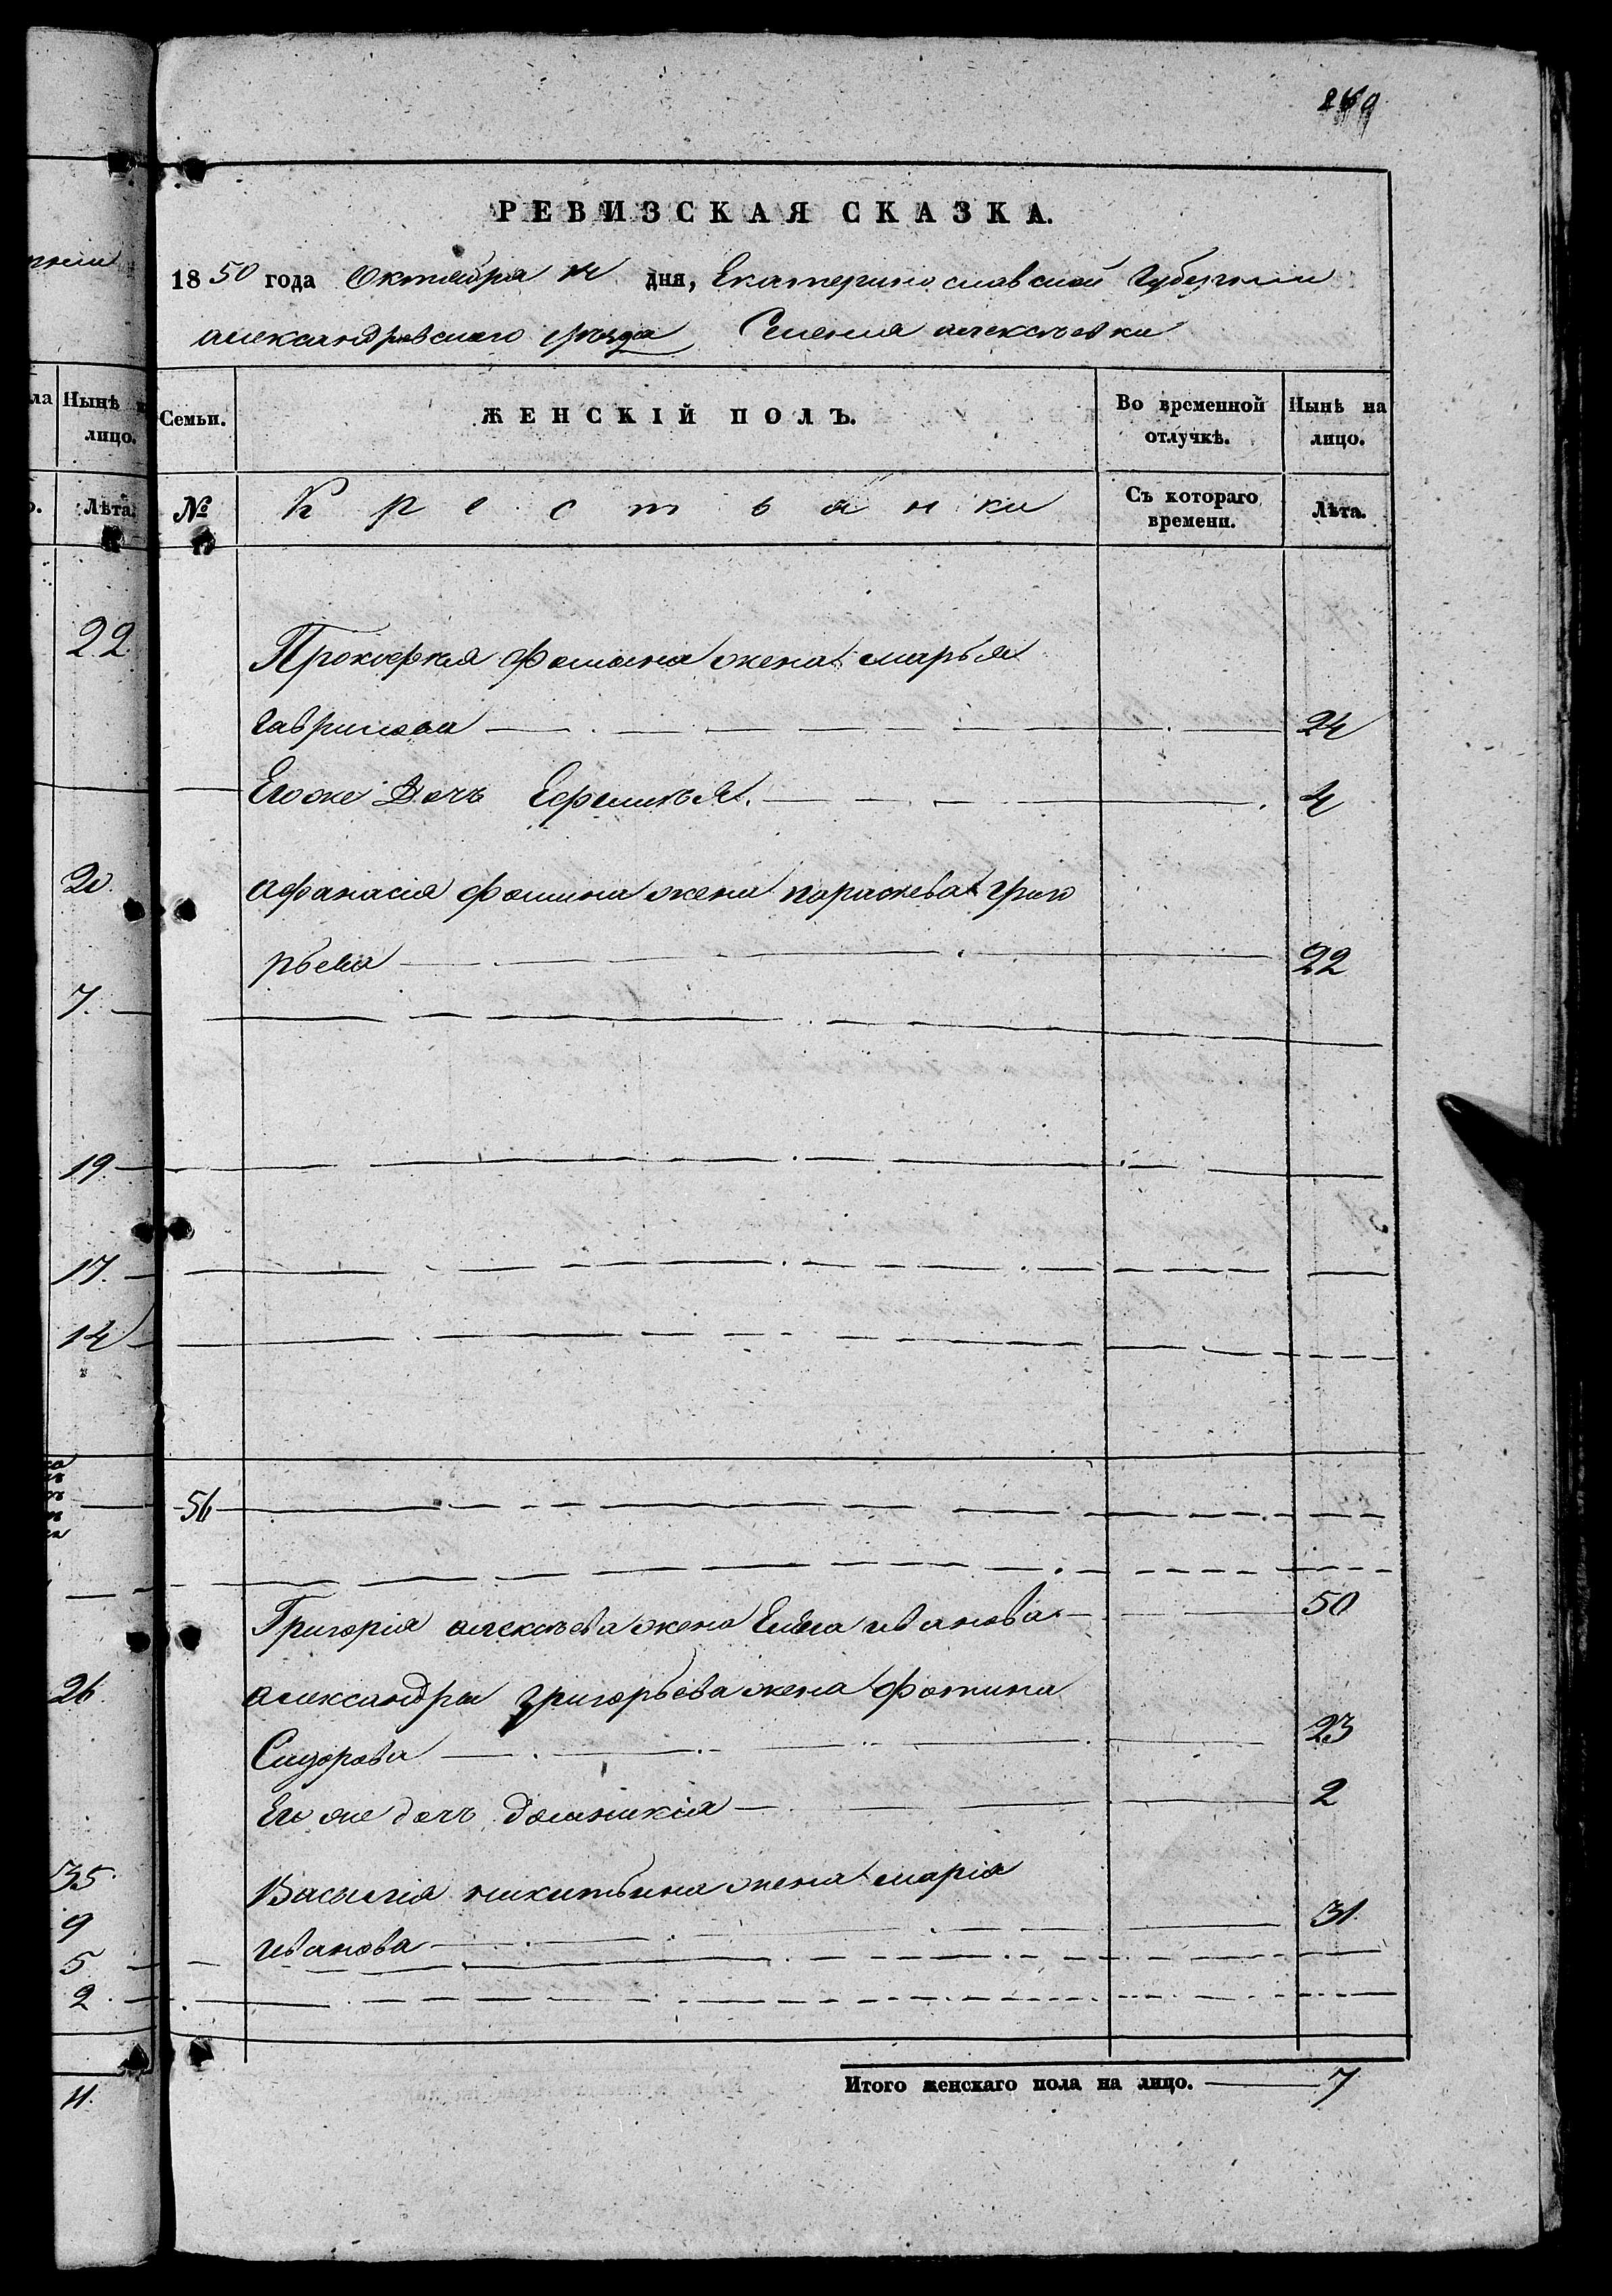 РЕВИЗСКАЯ СКАЗКА.
1850 года Октября дня, Екатеринославской Губернии
александровского уезда Селения алексѣевки
ла Нынѣ
лицо.
Семьи. ЖЕНСКІЙ ПОЛЪ. Во временной отлучкѣ. Нынѣ на лицо.
Лѣта.
№ Крестьянки Съ котораго времени. Лѣта.
22
Прокофия Фомина жена марья
гаврилова 24
Его же Дочь 4
20
афанасія фомина жена параскева григо
рьева 22
7.
19
17.
14
56
Григорія алексѣева жена Елена иванова 50
26.
александра григорьева жена Фотина
Сидорова 23
Его же дочь домникія 2
35.
Василія никитина жена марія
9
иванова 31
5
2
Итого женскаго пола на лицо. 7
11.